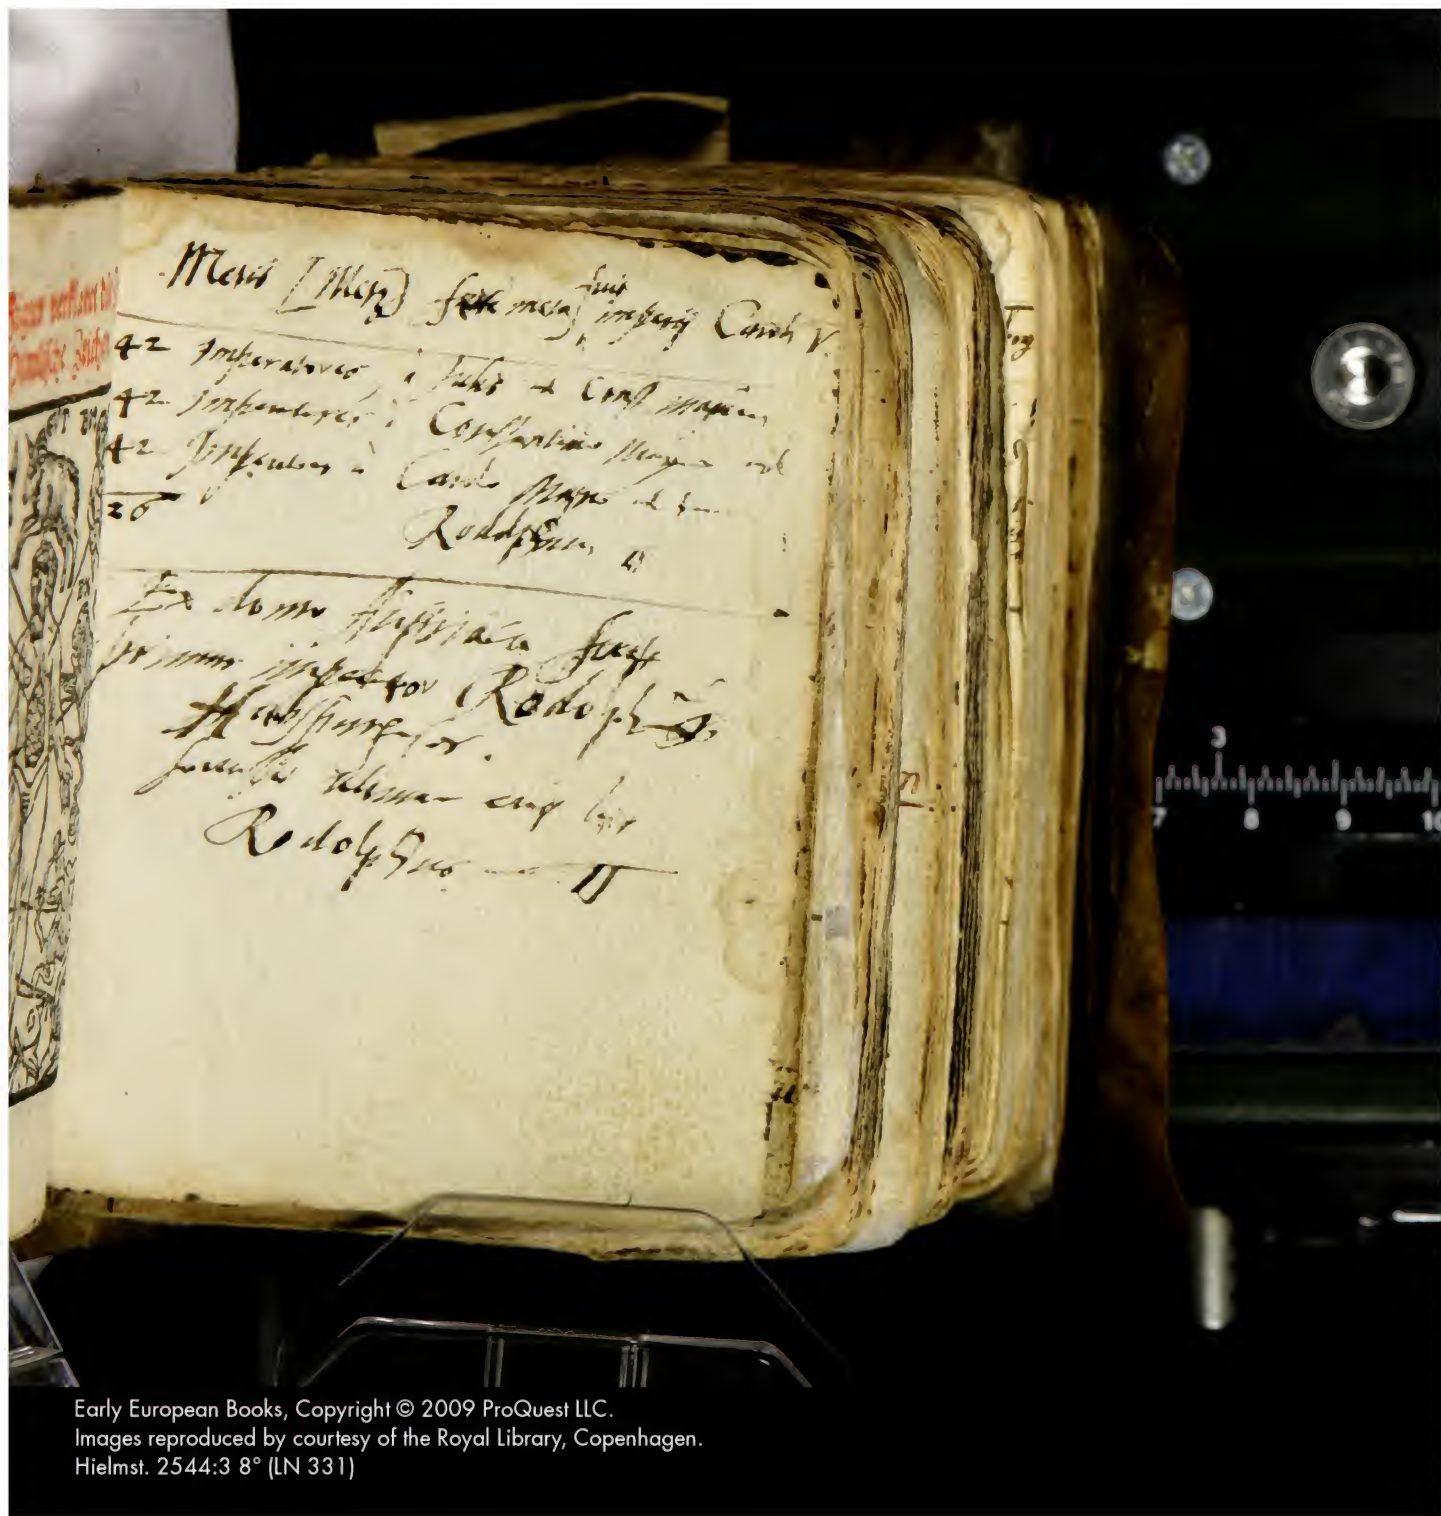 Metis [Metz] meta fuit imperij Caroli V.
42 Imperatores, à Julio ad Const magnum
42 Imperatores à Constantino Magno ad
42 Imperatores à Carolo Magno ad
Rodolphum II
126
Ex domo Austriaca fuit
primus imperator Rodolphus
Habspurgensis.
ultimus erit
Rodolphus II
3
7 8 9 10
Early European Books, Copyright © 2009 ProQuest LLC.
Images reproduced by courtesy of the Royal Library, Copenhagen.
Hielmst. 2544:3 8° (LN 331)